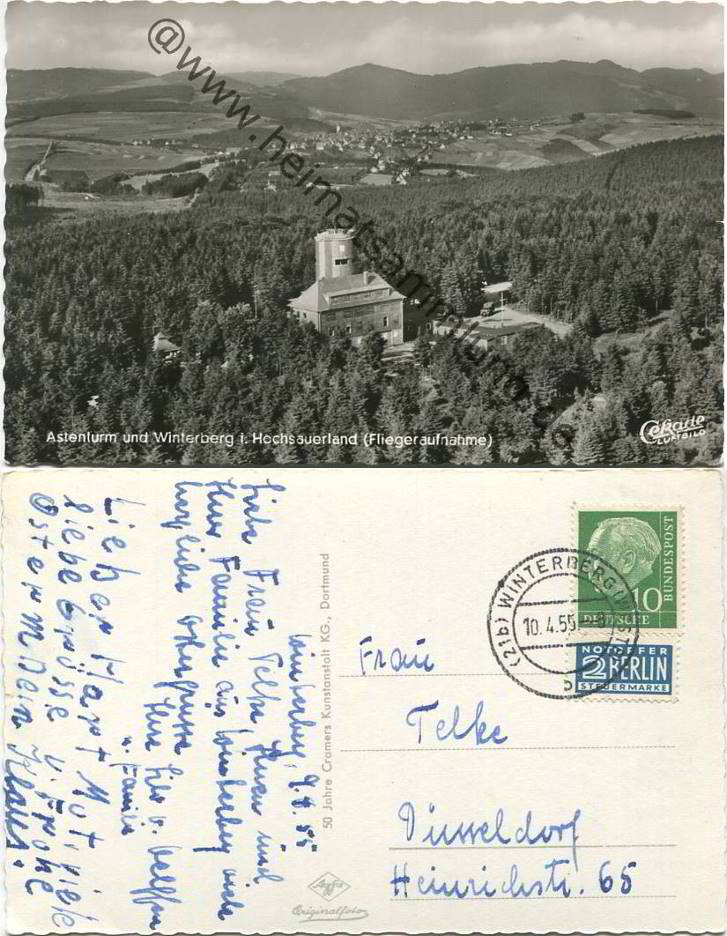 @www.heimatsammlung.de
Astenturm und Winterberg i. Hochsauerland (Fliegeraufnahme)
Cekade
LUFTBILD
Winterberg, 9.4.55
Liebe Frau Telke, Ihnen und
Ihrer Familie aus Winterberg viele
herzliche Ostergrüsse
Ihre
u. Familie
Lieber Hartmot, viele
liebe Grüsse u. frohe
Ostern Dein Klaus.
50 Jahre Cramers Kunstanstalt KG., Dortmund
Agfa
Originalfoto
(21b) WINTERBERG
10.4.55
b
10
DEUTSCHE
BUNDESPOST
NOTOPFER
2 BERLIN
STEUERMARKE
Frau
Telke
Düsseldorf
Heinrichstr. 65